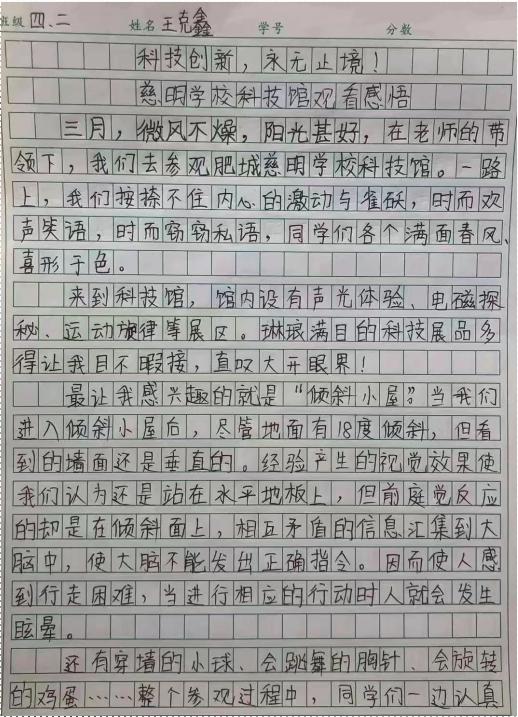 班级 四、二 姓名 王克鑫 学号 分数
科技创新，永无止境！
慈明学校科技馆观看感悟
三月，微风不燥，阳光甚好，在老师的带
领下，我们去参观肥城慈明学校科技馆。一路
上，我们按捺不住内心的激动与雀跃，时而欢
声笑语，时而窃窃私语，同学们各个满面春风、
喜形于色。
来到科技馆，馆内设有声光体验、电磁探
秘、运动旋律等展区。琳琅满目的科技展品多
得让我目不暇接，直叹大开眼界！
最让我感兴趣的就是“倾斜小屋”。当我们
进入倾斜小屋后，尽管地面有18度倾斜，但看
到的墙面还是垂直的。经验产生的视觉效果使
我们认为还是站在水平地板上，但前庭觉反应
的却是在倾斜面上，相互矛盾的信息汇集到大
脑中，使大脑不能发出正确指令。因而使人感
到行走困难，当进行相应的行动时人就会发生
眩晕。
还有穿墙的小球、会跳舞的胸针、会旋转
的鸡蛋……整个参观过程中，同学们一边认真